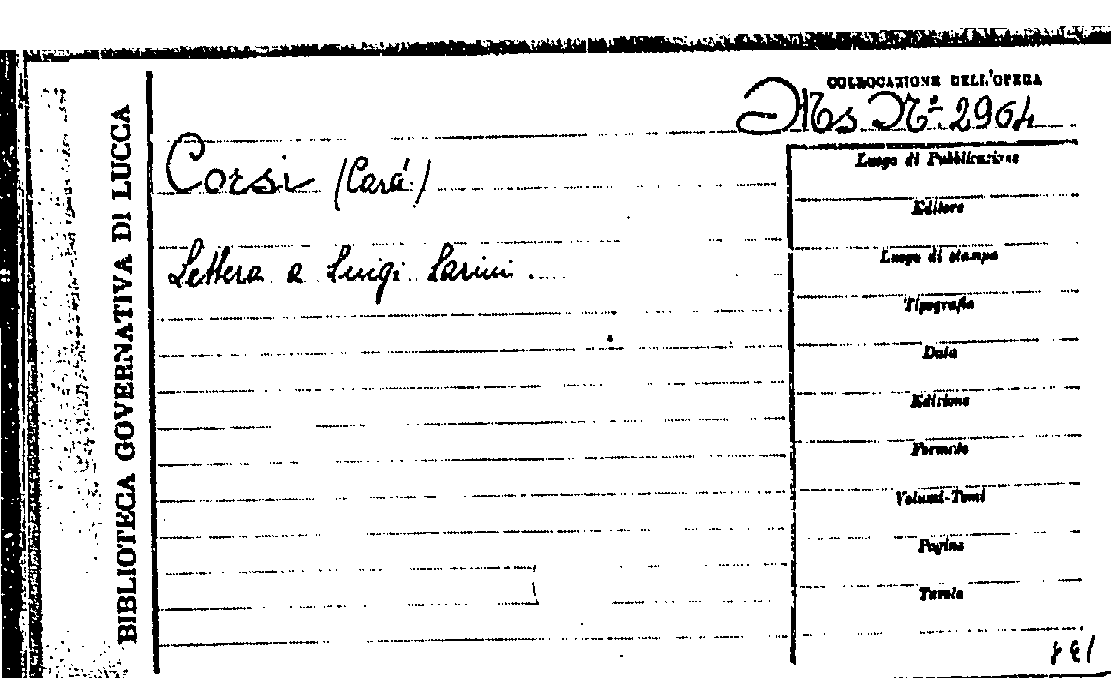 BIBLIOTECA GOVERNATIVA DI LUCCA
COLLOCAZIONE DELL'OPERA
Ms Nº. 2964
Corsi (Carà)
Lettera a Luigi Sarini.
Luogo di Pubblicazione
Editore
Luogo di stampa
Tipografia
Data
Edizione
Formato
Volumi-Tomi
Pagine
Tavole